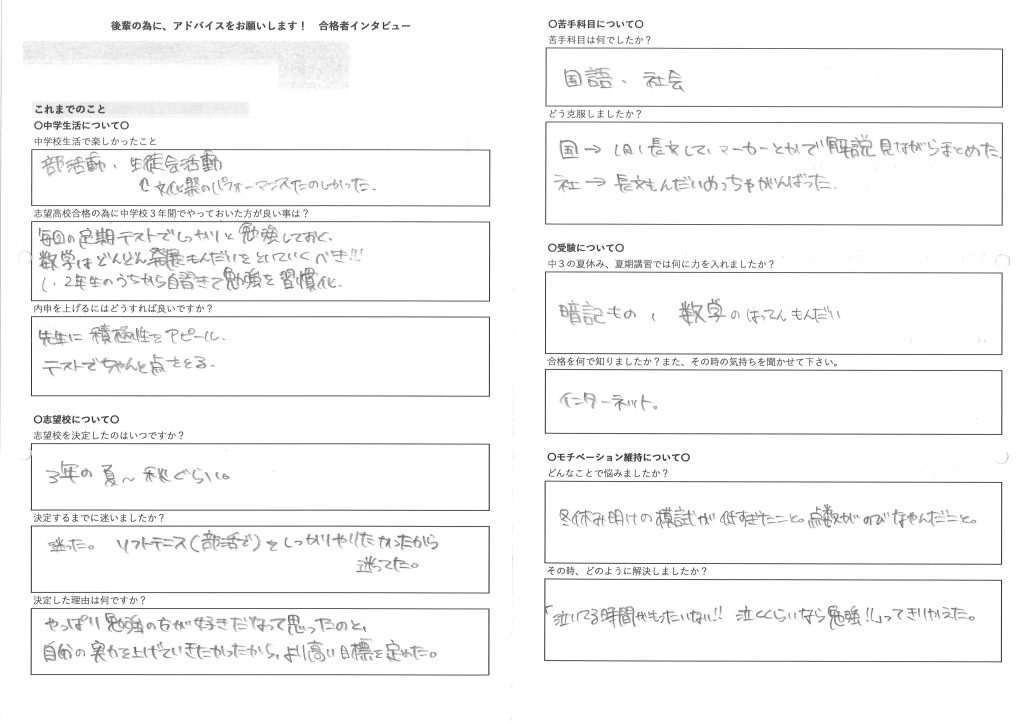 後輩の為に、アドバイスをお願いします！　合格者インタビュー
これまでのこと
〇中学生活について〇
中学校生活で楽しかったこと
部活動、生徒会活動
文化祭のパフォーマンスたのしかった。
志望高校合格の為に中学校３年間でやっておいた方が良い事は？
毎回の定期テストでしっかりと勉強しておく。
数学はどんどん発展もんだいをといていくべき!!!
1、2年生のうちから自習きて勉強を習慣化。
内申を上げるにはどうすれば良いですか？
先生に積極性をアピール。
テストでちゃんと点をとる。
〇志望校について〇
志望校を決定したのはいつですか？
3年の夏～秋ぐらい。
決定するまでに迷いましたか？
迷った。 ソフトテニス(部活で)をしっかりやりたかったから
迷ってた。
決定した理由は何ですか？
やっぱり勉強のなが好きだなって思ったのと、
自分の実力を上げていきたかったから、より高い目標を定めた。
〇苦手科目について〇
苦手科目は何でしたか？
国語、社会
どう克服しましたか？
国→1日1長文して、マーカーとかで解説見ながらまとめた。
社→長文もんだいめっちゃがんばった。
〇受験について〇
中３の夏休み、夏期講習では何に力を入れましたか？
暗記もの、数学のはってんもんだい
合格を何で知りましたか？また、その時の気持ちを聞かせて下さい。
インターネット。
〇モチベーション維持について〇
どんなことで悩みましたか？
冬休み明けの模試が低すぎたこと。点数がのびなやんだこと。
その時、どのように解決しましたか？
「泣いてる時間がもったいない!! 泣くくらいなら勉強!!」ってきりかえた。